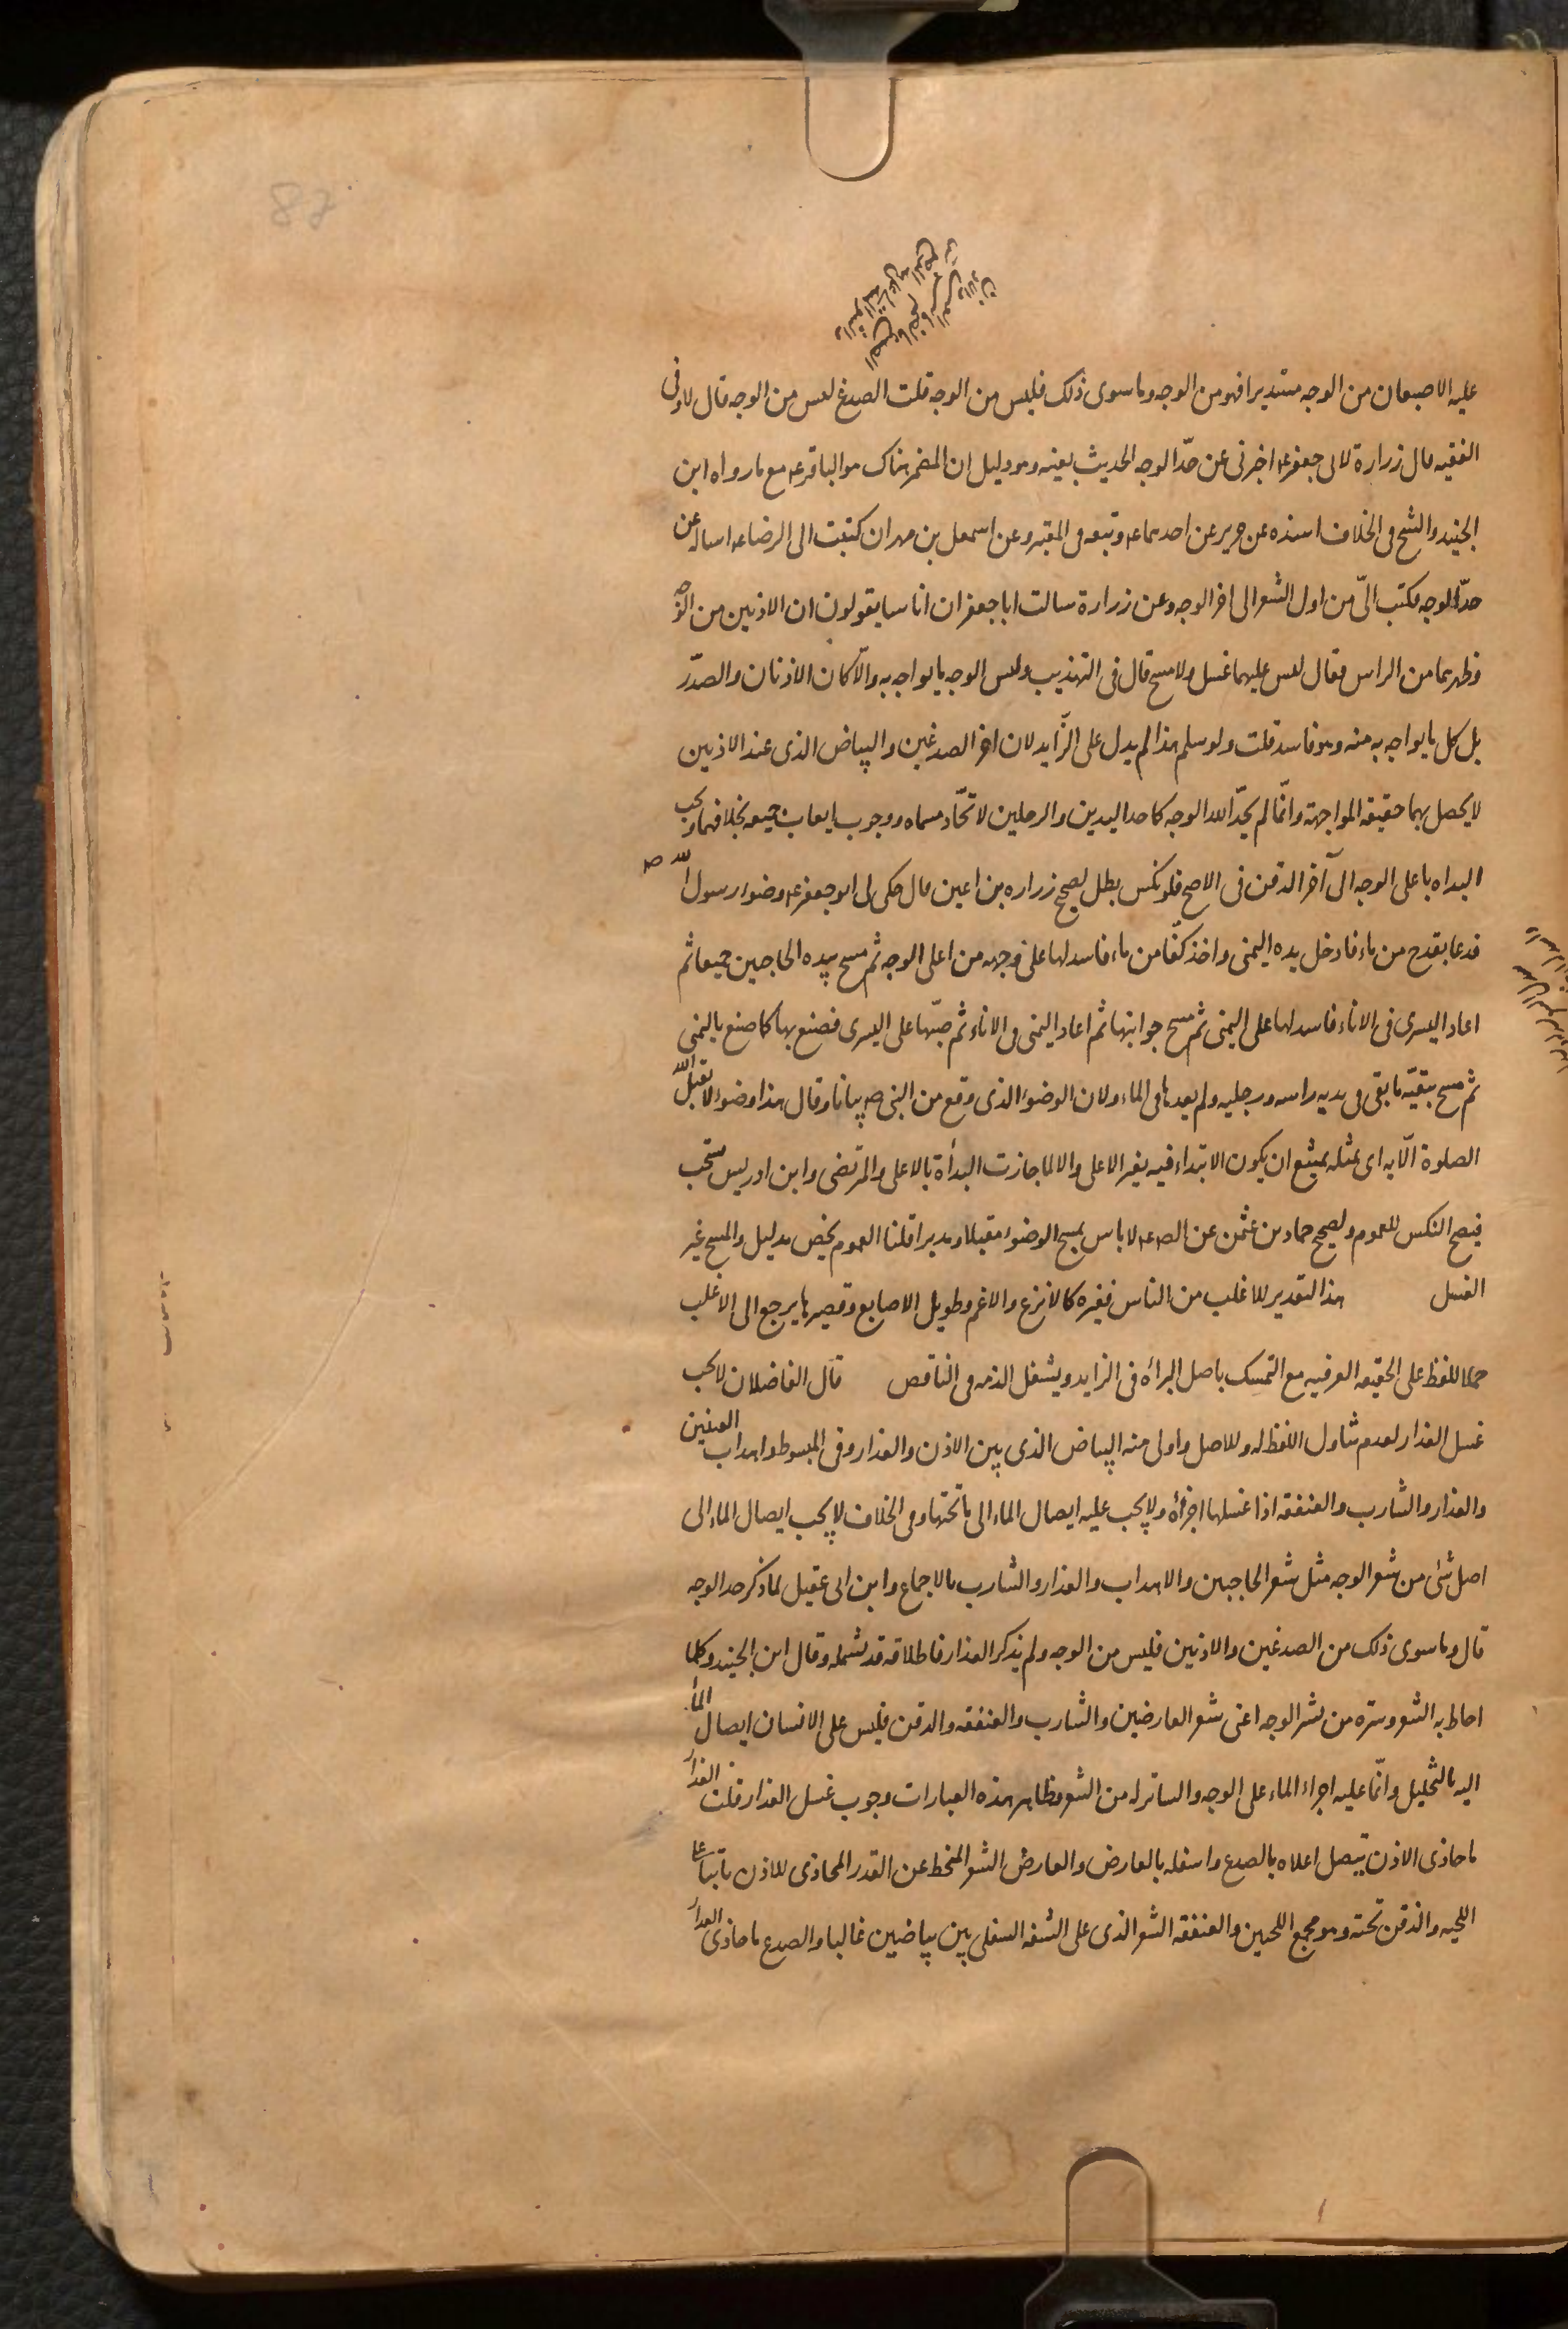 عليه الاصبعان من الوجه مستديرا فهو من الوجه وما سوى ذلك فليس من الوجه قلت الصدغ ليس من الوجه قال لا وفى
الفقيه قال زرارة لابى جعفر ع اخبرنى عن حدّ الوجه الحديث بعينه وهو دليل ان المضمر هناك هو الباقر ع مع ما رواه ابن
الجنيد والشيخ فى الخلاف اسنده عن حريز عن احدهما ع وتبعه فى المعتبر وعن اسمعيل بن مهران كتبت الى الرضا ع اساله عن
حدّ الوجه فكتب الىّ من اول الشعر الى اخر الوجه وعن زرارة سالت ابا جعفر ان اناسا يقولون ان الاذنين من الوجه
وظهرهما من الراس فقال ليس عليهما غسل ولا مسح قال فى التهذيب وليس الوجه ما يواجه به والّا كان الاذنان والصدر
بل كل ما يواجه به منه وهو فاسد قلت ولو سلم هذا لم يدل على الزّايد لان اخر الصدغين والبياض الذى عند الاذنين
لا يحصل بهما حقيقة المواجهة وانّما لم يحدّ الله الوجه كما حد اليدين والرجلين لاتحّاد مسماه ووجوب ايعاب جميعه بخلافهما ويجب
البداه باعلى الوجه الى آخر الذقن فى الاصح فلو نكس بطل لصحيح زراره بن اعين قال حكى لى ابو جعفر ع وضوء رسول الله ص
فدعا بقدح من ماء فادخل يده اليمنى واخذ كفّا من ماء فاسدلها على وجهه من اعلى الوجه ثم مسح بيده الحاجبين جميعا ثم
اعاد اليسرى فى الاناء فاسدلها على اليمنى ثم مسح جوانبها ثم اعاد اليمنى فى الاناء ثم صبّها على اليسرى فصنع بها كما صنع باليمنى
ثم مسح ببقيّة ما بقى فى يديه راسه ورجليه ولم يعدها فى الماء ولان الوضوء الذى وقع من النبى ص بيانا وقال هذا وضوء لا يقبل الله
الصلوة الّا به اى بمثله يمتنع ان يكون الابتداء فيه بغير الاعلى والا لما جازت البدأة بالاعلى والمرتضى وابن ادريس يستحب
فيصح النكس للعموم ولصحيح حماد بن عثمن عن الص ع لا باس بمسح الوضوء مقبلا ومدبرا قلنا العموم يخص بدليل والمسح غير
الغسل هذا التقدير للاغلب من الناس فغيره كالانزع والاغم وطويل الاصابع وقصيرها يرجع الى الاغلب
حملا للفظ على الحقيقه العرفيه مع التمسك باصل البرأه فى الزايد وبشغل الذمه فى الناقص قال الفاضلان لا يجب
غسل العذار لعدم تناول اللفظ له وللاصل واولى منه البياض الذى بين الاذن والعذار وفى المبسوط واهداب العينين
والعذار والشارب والعنفقه اذا غسلها اجزأه ولا يجب عليه ايصال الماء الى ما تحتها وفى الخلاف لا يجب ايصال الماء الى
اصل شئ من شعر الوجه مثل شعر الحاجبين والاهداب والعذار والشارب بالاجماع وابن ابى عقيل لما ذكر حد الوجه
قال وما سوى ذلك من الصدغين والاذنين فليس من الوجه ولم يذكر العذار فاطلاقه قد يشمله وقال ابن الجنيد وكلما
احاط به الشعر وستره من بشر الوجه اعنى شعر العارضين والشارب والعنفقه والذقن فليس على الانسان ايصال الماء
اليه بالتخليل وانّما عليه اجراء الماء على الوجه والساتر له من الشعر وظاهر هذه العبارات وجوب غسل العذار قلت العذار
ما حاذى الاذن يتصل اعلاه بالصدغ واسفله بالعارض والعارض الشعر المنحط عن القدر المحاذى للاذن نابتا على
اللحيه والذقن تحته وهو مجمع اللحيين والعنفقه الشعر الذى على الشفه السفلى بين بياضين غالبا والصدغ ما حاذى العذار